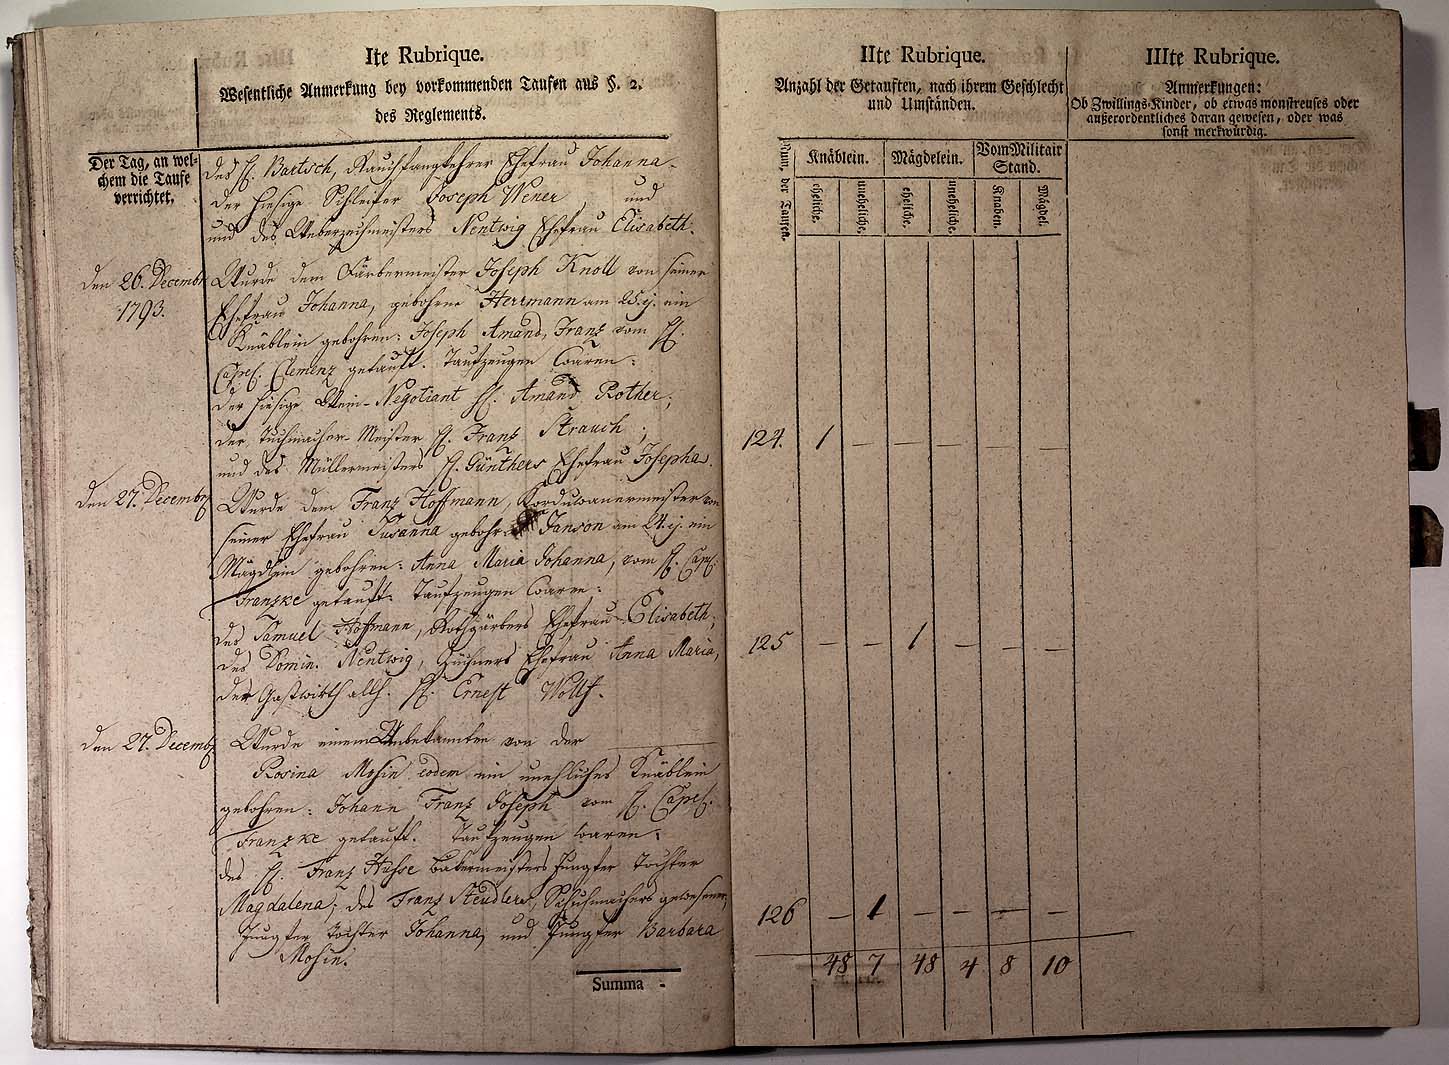 Ite Rubrique.
Wesentliche Anmerkung bey vorkommenden Taufen aus §. 2.
des Reglements.
Der Tag, an wel-
chem die Taufe
verrichtet.
des H. Bartsch, Ehefrau Johanna
der hiesige Schleifer Joseph Wener, und
und des Ueberzeichmeisters Nentwig Ehefrau Elisabeth.
den 26. Decembr
1793.
Wurde dem Färbermeister Joseph Knoll von seiner
Ehefrau Johanna, gebohrne Herrmann am 25. ej. ein
Knäblein gebohren: Joseph Amand, Franz vom H.
Capel. Clemenz getauft. Taufzeugen waren:
der hiesige Wein-Negotiant H. Amand Rother,
der Tuchmacher-Meister H. Franz Strauch,
und des Müllermeisters H. Günthers Ehefrau Josepha.
den 27. Decembr
Wurde dem Franz Hoffmann, Korduwanermeister von
seiner Ehefrau Susanna gebohr. Janson am 24. ej. ein
Mägdlein gebohren: Anna Maria Johanna, vom H. Capel.
Franzke getauft. Taufzeugen waren:
des Samuel Hoffmann, Rothgärbers Ehefrau Elisabeth,
des Domin. Nentwig, Züchners Ehefrau Anna Maria,
der Gastwirth allh. H. Ernest Wolff.
den 27. Decembr
Wurde einem Unbekannten von der
Rosina Mosin eodem ein unehliches Knäblein
gebohren: Johann Franz Joseph vom H. Capel.
Franzke getauft. Taufzeugen waren:
des H. Franz Hasse Bäkermeisters Jungfer Tochter
Magdalena; des Franz Steudlers, Schuhmachers gewesenen
Jungfer Tochter Johanna, und Jungfer Barbara
Mosin.
Summa -
IIte Rubrique.
Anzahl der Getauften, nach ihrem Geschlecht
und Umständen.
Num. der Taufen.
Knäblein. Mägdelein. Vom Militair
Stand.
eheliche. uneheliche. eheliche. uneheliche. Knaben. Mägdel.
124. 1 — — — — —
125 — — 1 — — —
126 — 1 — — — —
48 7 48 4 8 10
IIIte Rubrique.
Anmerkungen:
Ob Zwillings-Kinder, ob etwas monstreuses oder
außerordentliches daran gewesen, oder was
sonst merkwürdig.